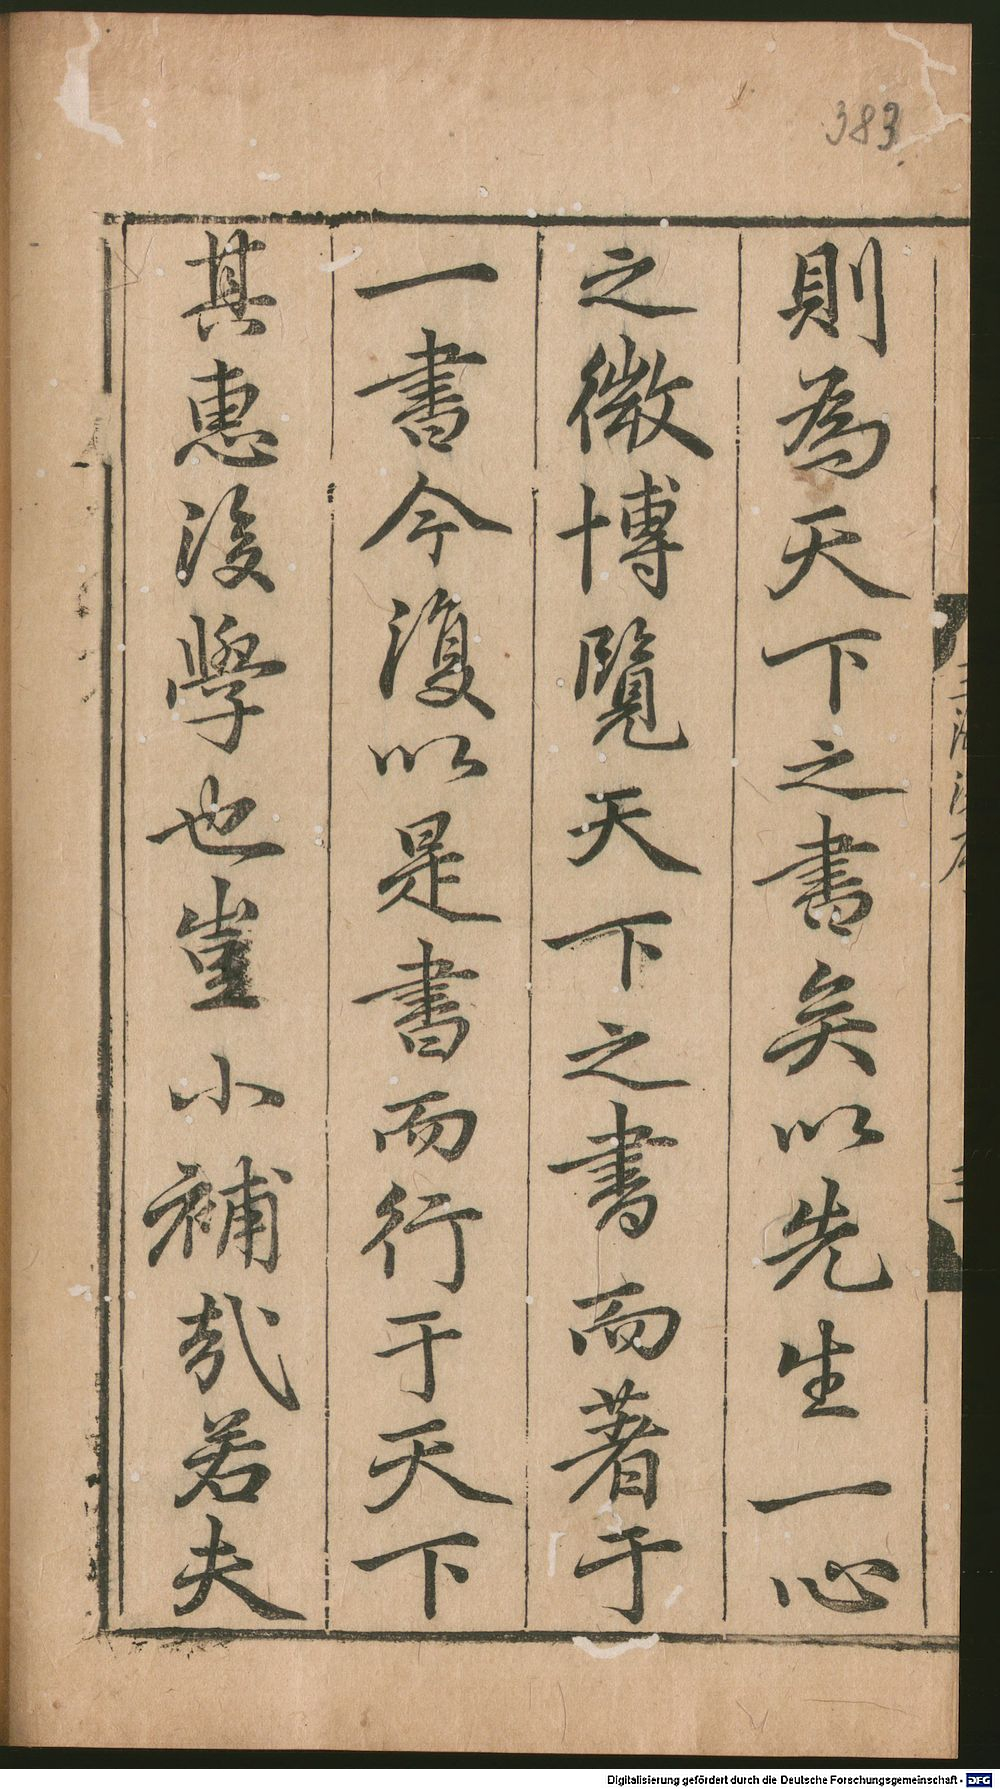 383
則為天下之書矣以先生一心
之微博覽天下之書而著于
一書今復以是書而行于天下
其惠後學也豈小補哉若夫
Digitalisierung gefördert durch die Deutsche Forschungsgemeinschaft - DFG